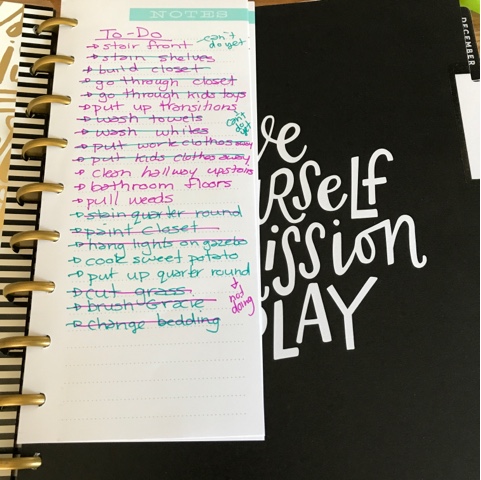 NOTES
To-Do
→ stair front - can't do yet
→ stain shelves
→ build closet
→ go through closet
→ go through kids toys
→ put up transitions
→ wash towels can't do yet
→ wash whites
→ put work clothes away
→ put kids clothes away
→ clean hallway upstairs
→ bathroom floors
→ pull weeds
→ stain quarter round
→ paint closet
→ hang lights on gazebo
→ cook sweet potato
→ put up quarter round
→ cut grass ↓ not doing
→ brush Gracie
→ change bedding
DECEMBER
ve
RSELF
ission
LAY